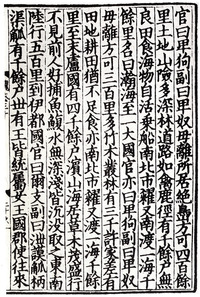 官曰卑狗副曰卑奴毋離所居絶島方可四百餘
里土地山險多深林道路如禽鹿徑有千餘戸無
良田食海物自活乗船南北市糴又南渡一海千
餘里名曰瀚海至一大國官亦曰卑狗副曰卑奴
毋離方可三百里多竹木叢林有三千許家差有
田地耕田猶不足食亦南北市糴又渡一海千餘
里至末盧國有四千餘戸濱山海居草木茂盛行
不見前人好捕魚鰒水無深淺皆沈没取之東南
陸行五百里到伊都國官曰爾支副曰泄謨觚柄
渠觚有千餘戸世有王皆統屬女王國郡使往來